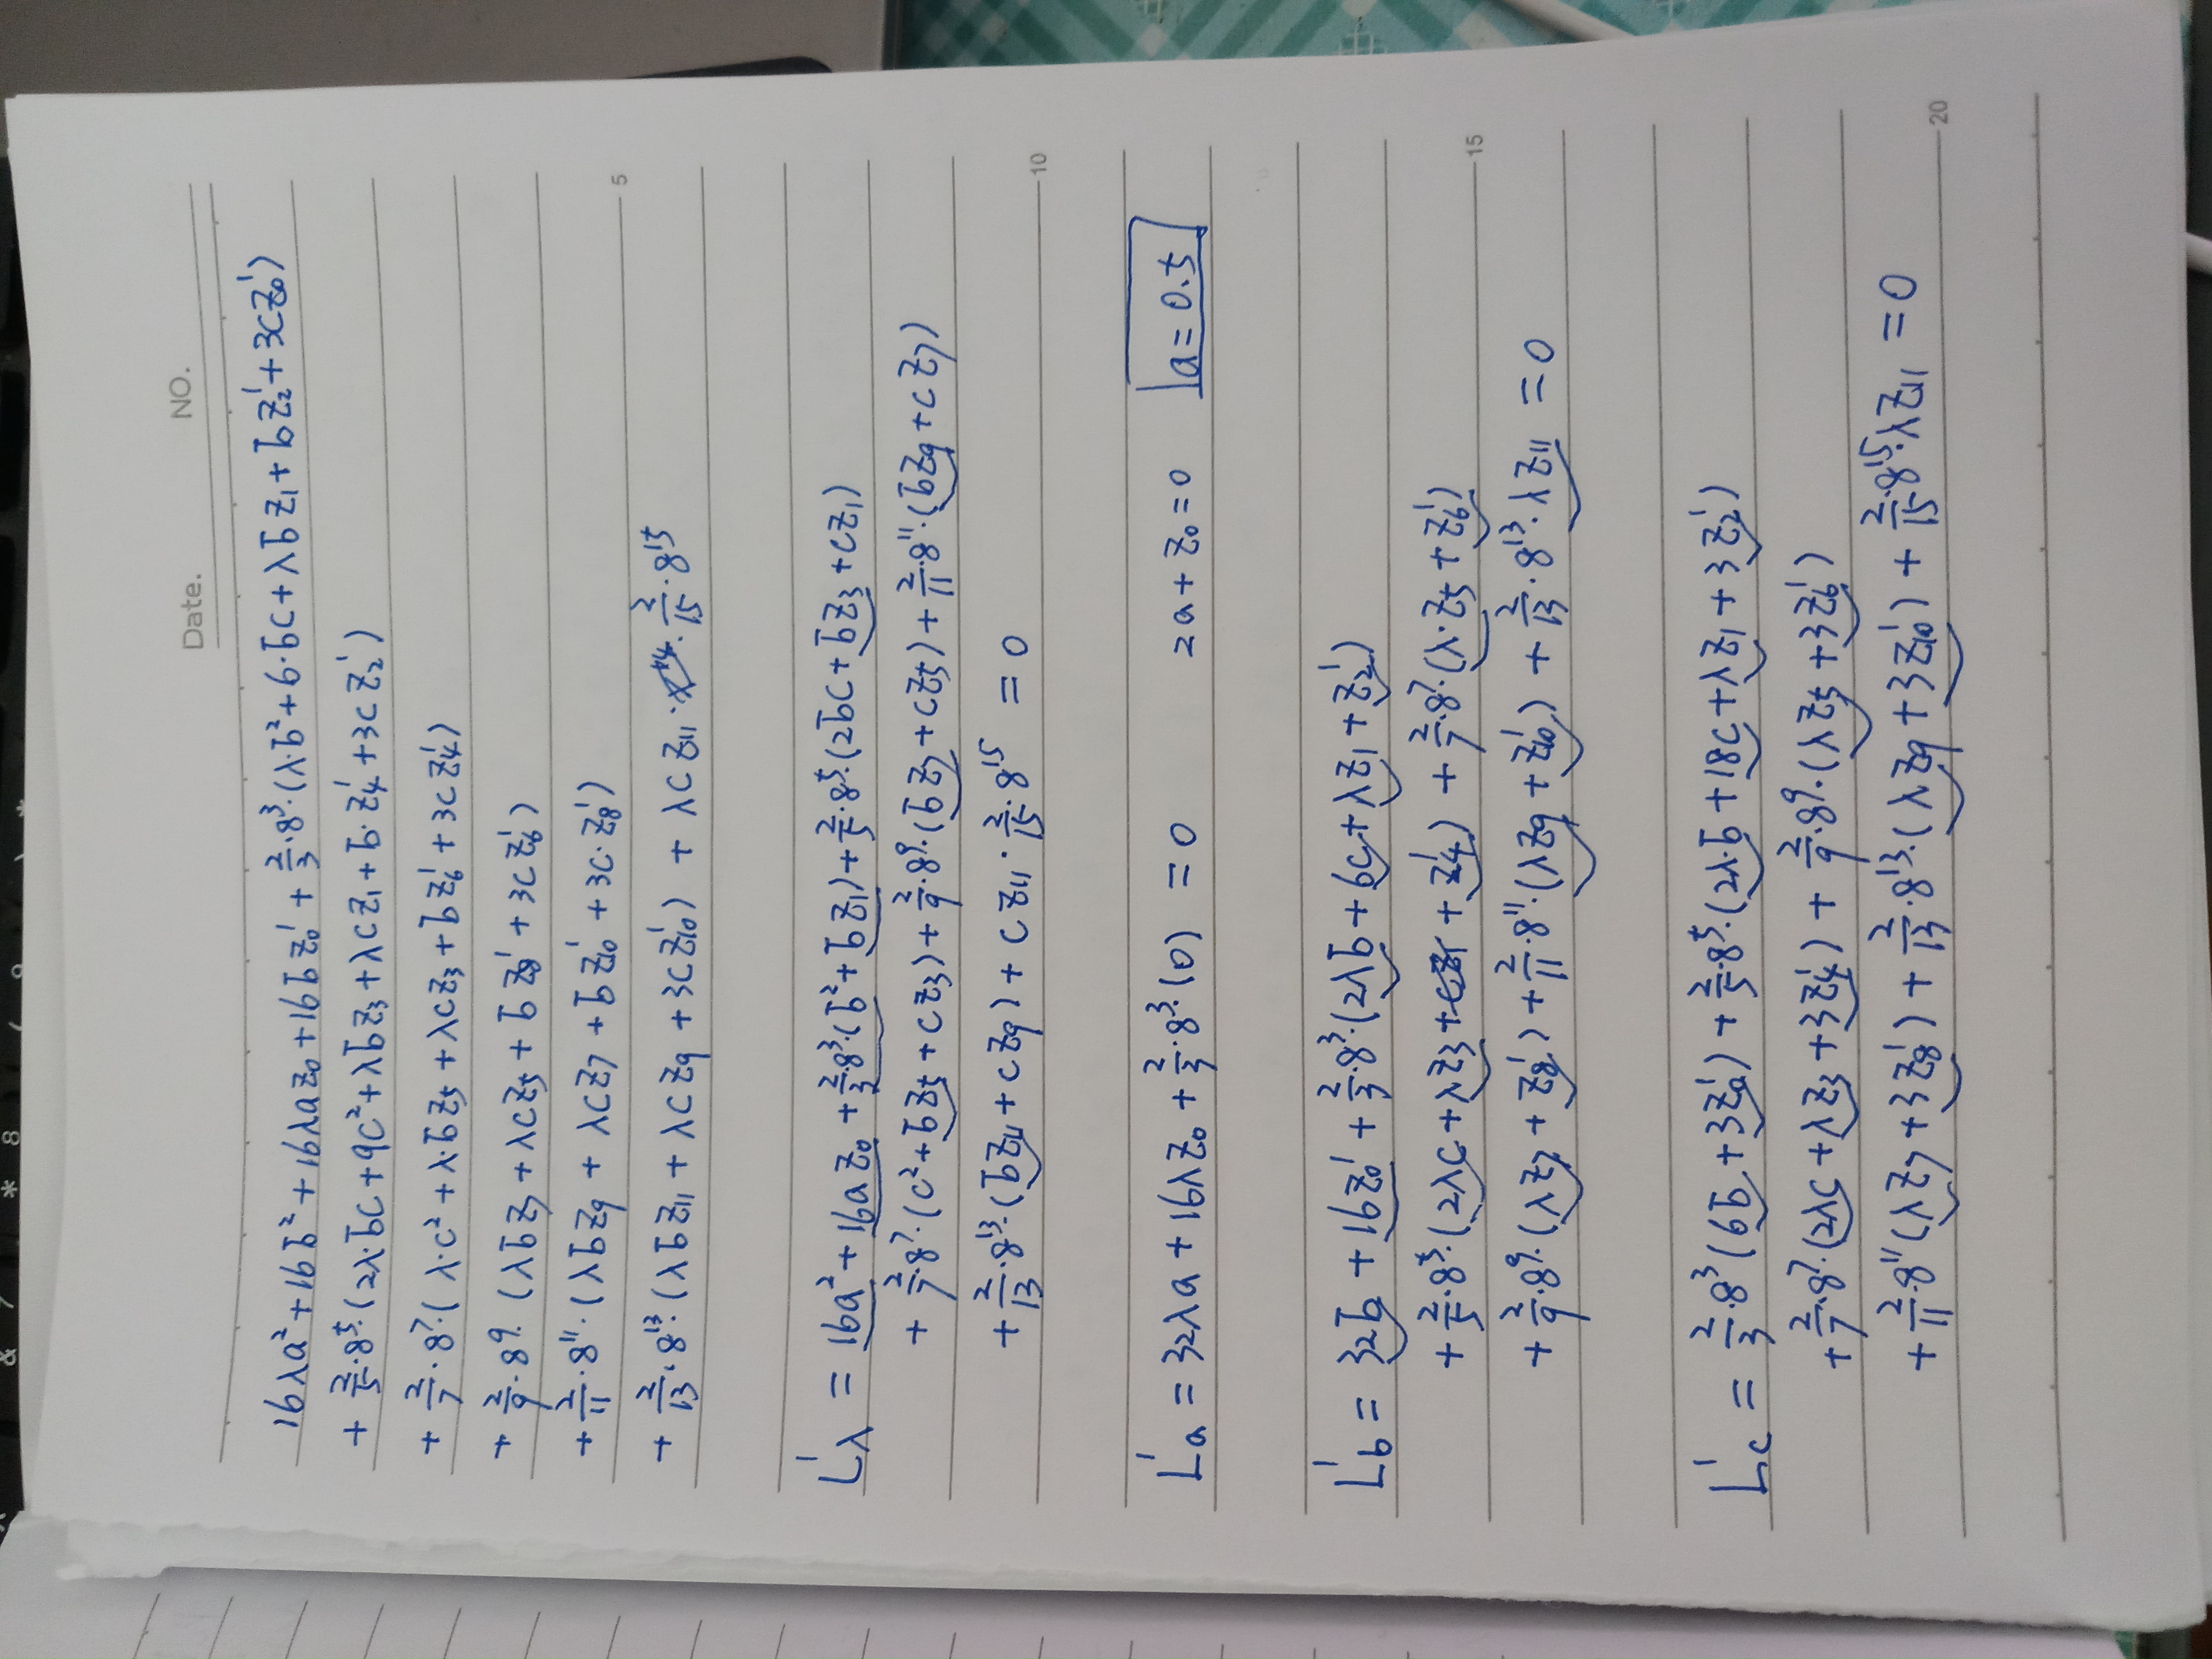 & 7 * 8 ( 9 ) *
Date. NO.
16λa² + 16b² + 16λaz₀ + 16bz₀' + 2/3·8³·(λ·b² + 6·bc + λbz₁ + bz₂' + 3cz₀')
+ 2/5·8⁵·(2λ·bc + 9c² + λbz₃ + λcz₁ + b·z₄' + 3cz₂')
+ 2/7·8⁷·(λ·c² + λ·bz₅ + λcz₃ + bz₆' + 3cz₄')
+ 2/9·8⁹·(λbz₇ + λcz₅ + bz₈' + 3cz₆')
+ 2/11·8¹¹·(λbz₉ + λcz₇ + bz₁₀' + 3c·z₈')
5
+ 2/13·8¹³·(λbz₁₁ + λcz₉ + 3cz₁₀') + λcz₁₁· ·2/15·8¹⁵
L'λ = 16a² + 16az₀ + 2/3·8³·(b² + bz₁) + 2/5·8⁵·(2bc + bz₃ + cz₁)
+ 2/7·8⁷·(c² + bz₅ + cz₃) + 2/9·8⁹·(bz₇ + cz₅) + 2/11·8¹¹·(bz₉ + cz₇)
+ 2/13·8¹³·(bz₁₁ + cz₉) + cz₁₁·2/15·8¹⁵ = 0
10
L'a = 32λa + 16λz₀ + 2/3·8³·(0) = 0 2a + z₀ = 0 a = 0.5
L'b = 32b + 16z₀' + 2/3·8³·(2λb + 6c + λz₁ + z₂')
+ 2/5·8⁵·(2λc + λz₃ + cz₁ + z₄') + 2/7·8⁷·(λ·z₅ + z₆')
15
+ 2/9·8⁹·(λz₇ + z₈') + 2/11·8¹¹·(λz₉ + z₁₀') + 2/13·8¹³·λz₁₁ = 0
L'c = 2/3·8³(6b + 3z₀') + 2/5·8⁵·(2λ·b + 18c + λz₁ + 3z₂')
+ 2/7·8⁷·(2λc + λz₃ + 3z₄') + 2/9·8⁹·(λz₅ + 3z₆')
+ 2/11·8¹¹(λz₇ + 3z₈') + 2/13·8¹³·(λz₉ + 3z₁₀') + 2/15·8¹⁵·λz₁₁ = 0
20